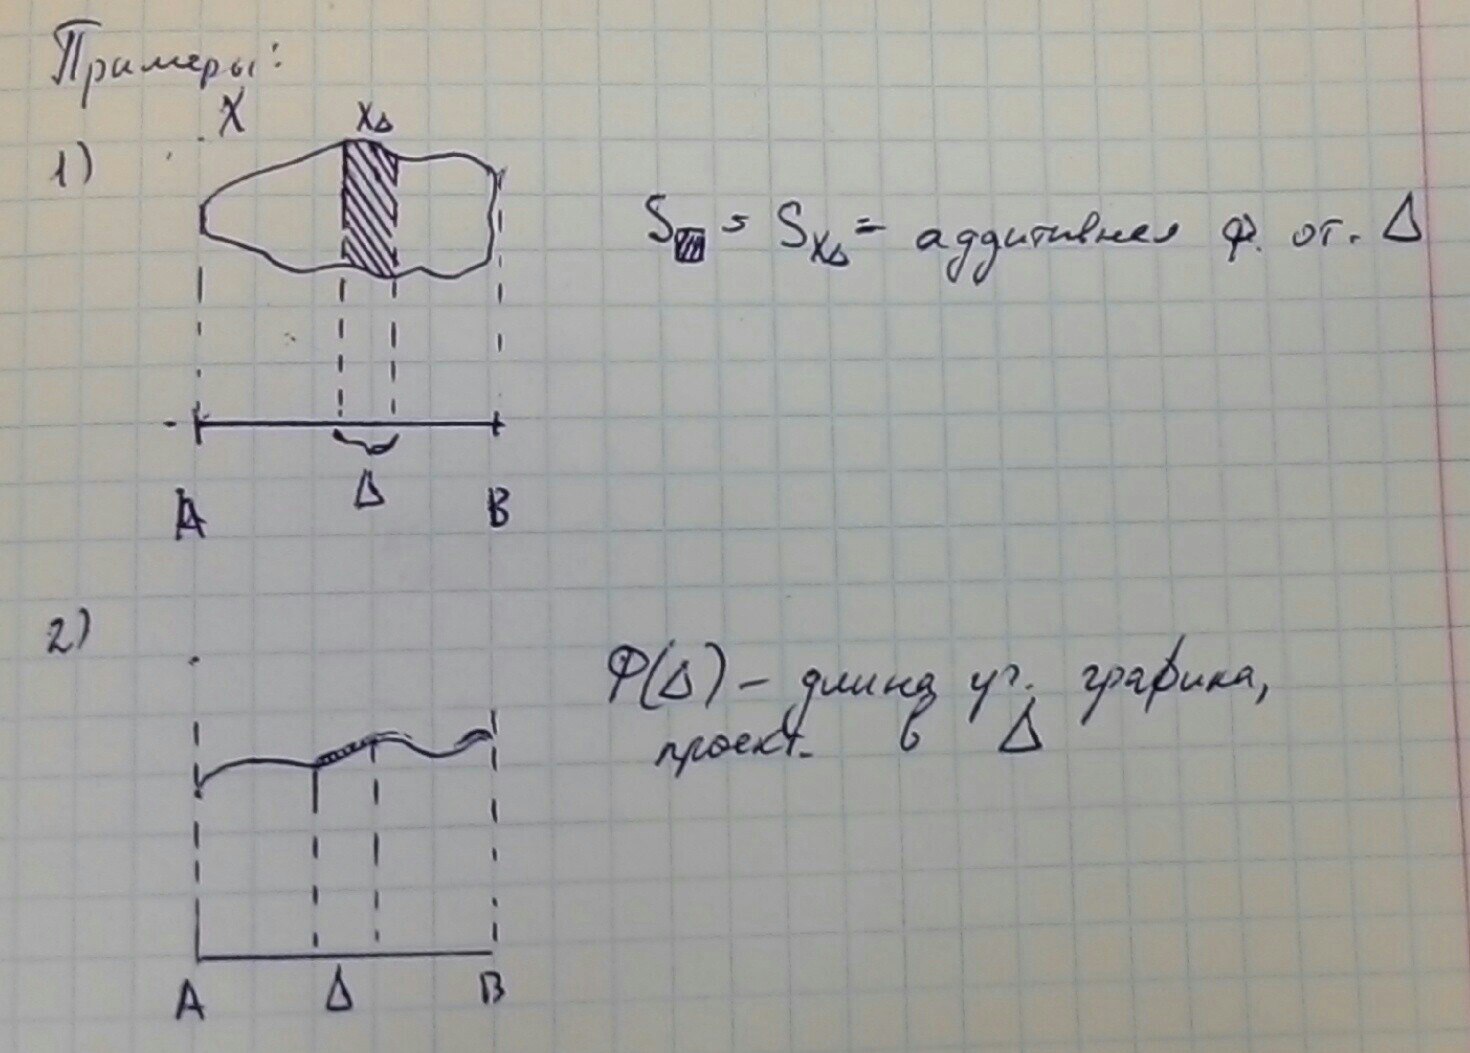 Примеры:
X
XΔ
1)
S▨ = S_XΔ = аддитивная ф. от. Δ
Δ
A
B
2)
Φ(Δ) – длина уч. графика,
проект. в Δ
A
Δ
B